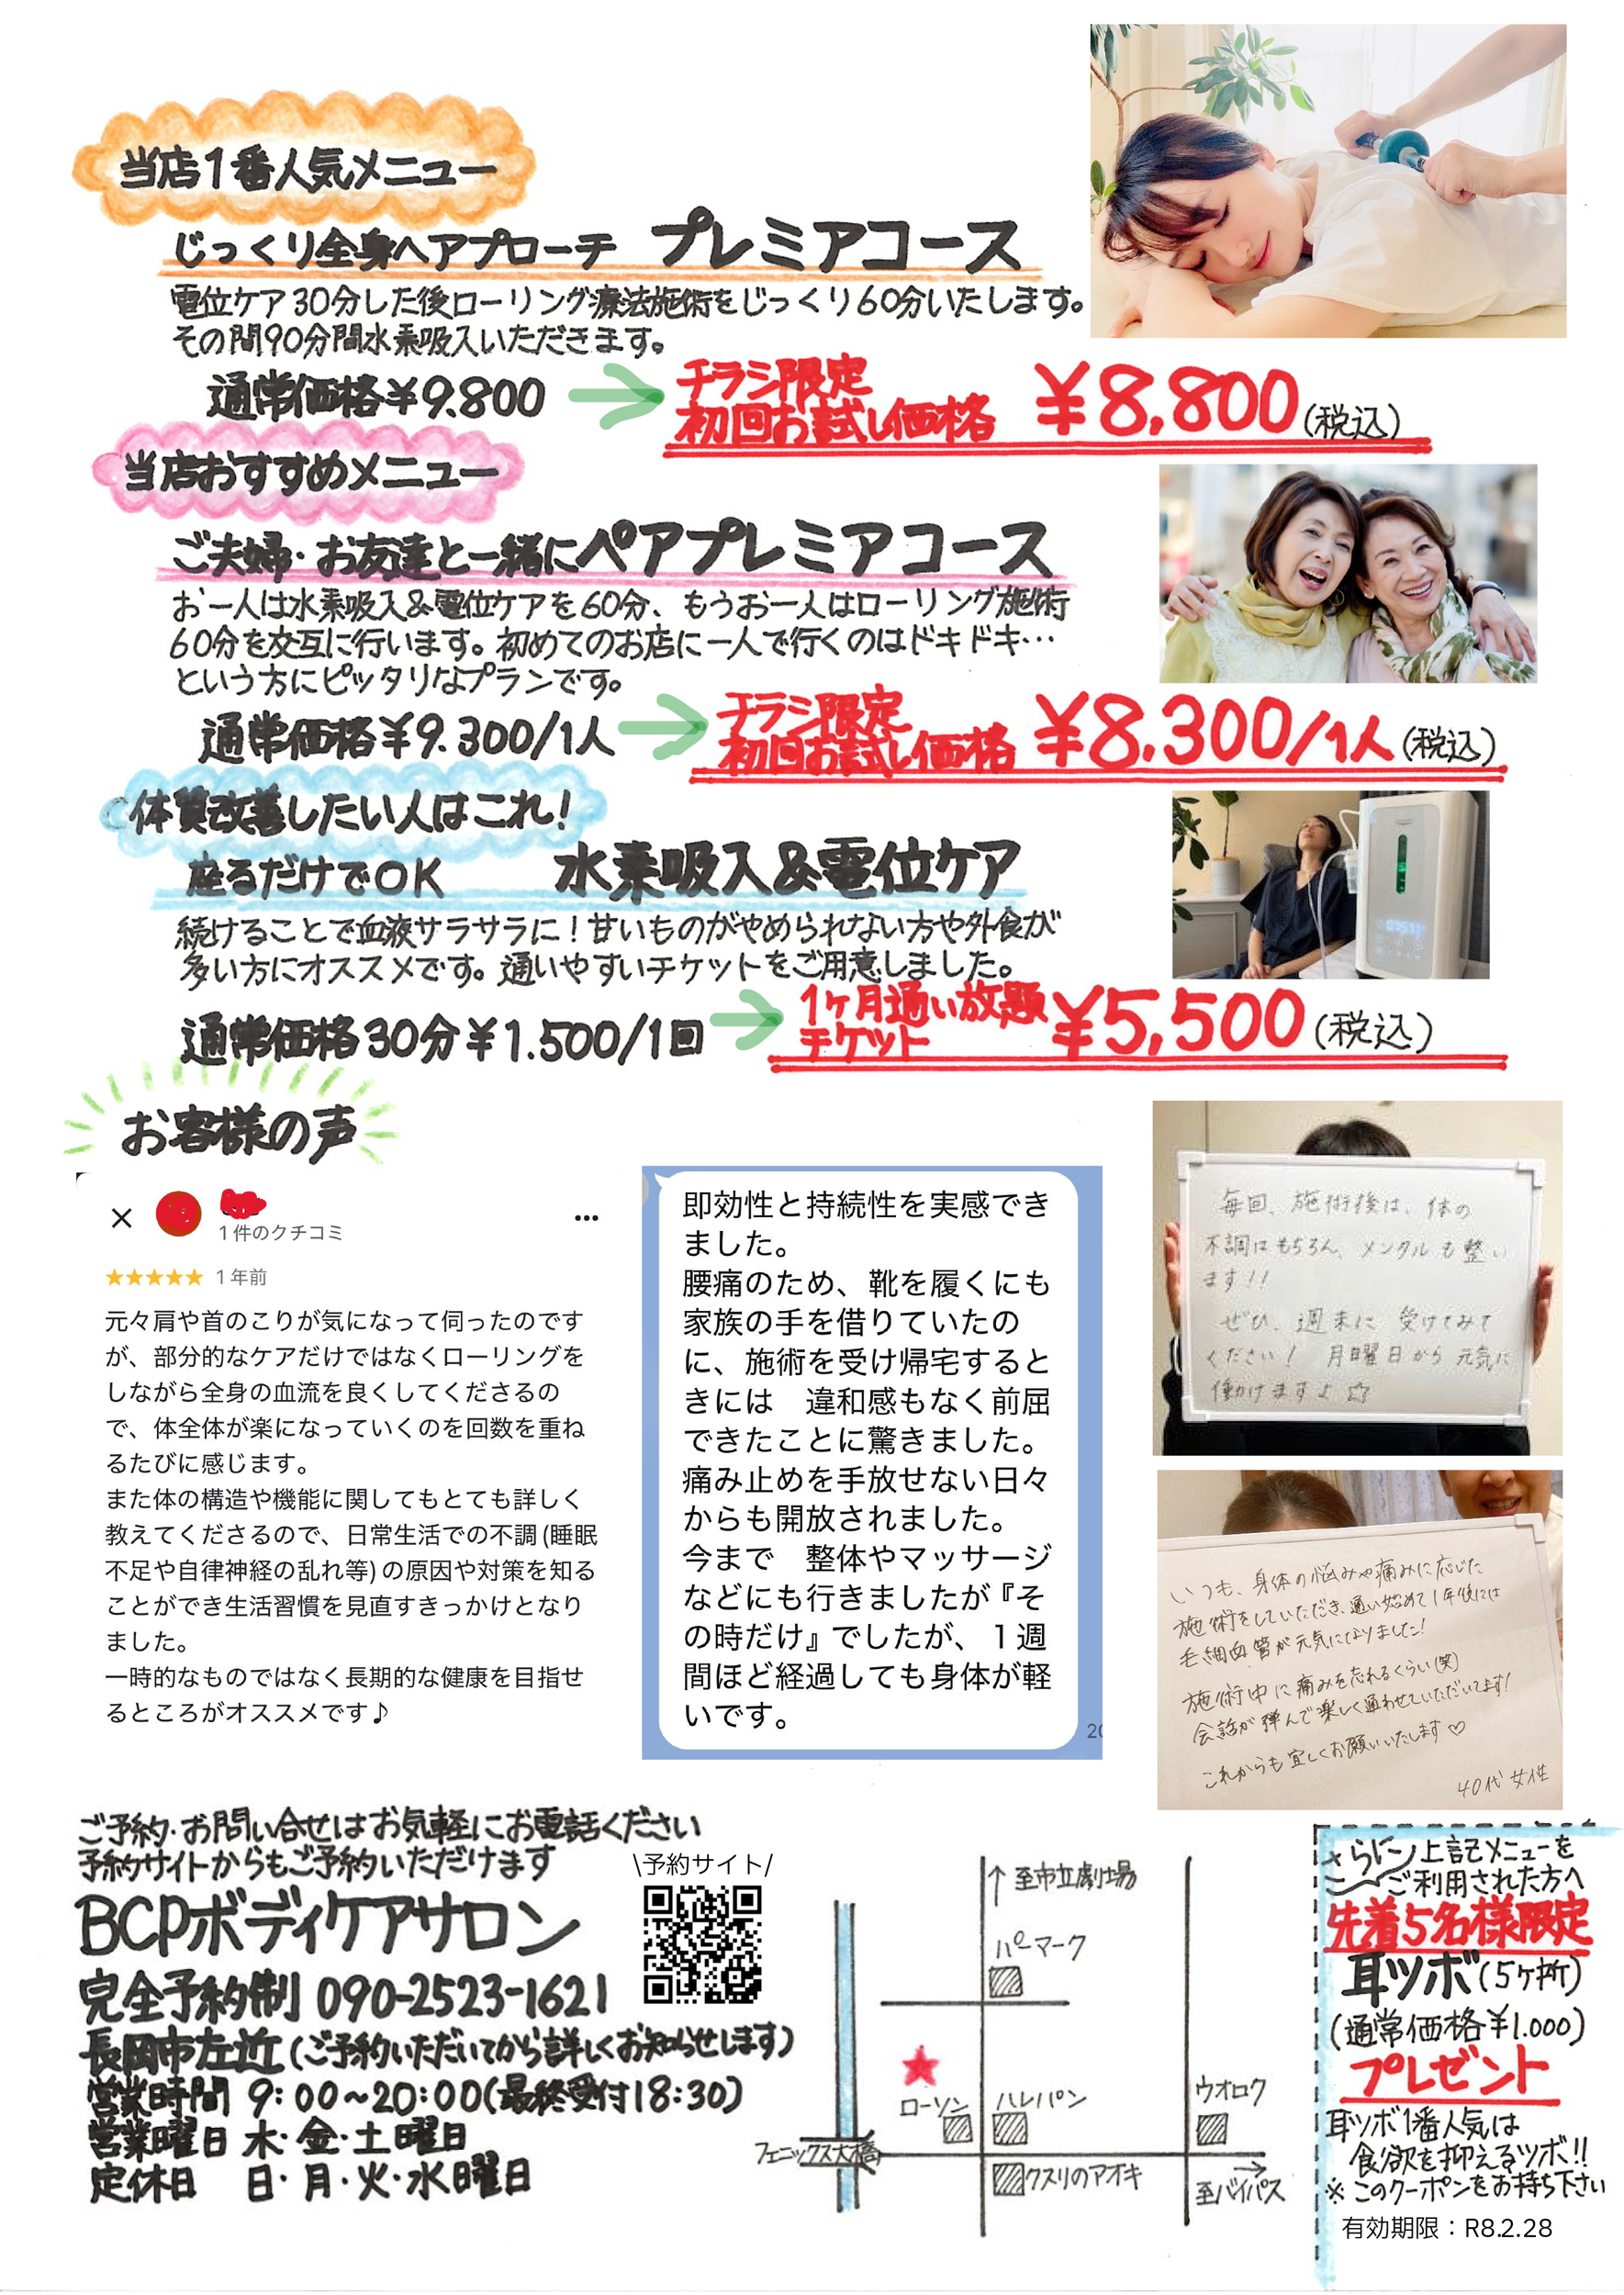 当店1番人気メニュー
じっくり全身へアプローチ プレミアコース
電位ケア30分した後ローリング療法施術をじっくり60分いたします。
その間90分間水素吸入いただきます。
通常価格¥9.800
チラシ限定
初回お試し価格 ¥8,800(税込)
当店おすすめメニュー
ご夫婦・お友達と一緒にペアプレミアコース
お一人は水素吸入&電位ケアを60分、もうお一人はローリング施術
60分を交互に行います。初めてのお店に一人で行くのはドキドキ…
という方にピッタリなプランです。
通常価格¥9.300/1人
チラシ限定
初回お試し価格 ¥8.300/1人(税込)
体質改善したい人はこれ!
座るだけでOK 水素吸入&電位ケア
続けることで血液サラサラに!甘いものがやめられない方や外食が
多い方にオススメです。通いやすいチケットをご用意しました。
通常価格30分¥1.500/1回
1ヶ月通い放題
チケット ¥5,500(税込)
お客様の声
1件のクチコミ
★★★★★ 1年前
元々肩や首のこりが気になって伺ったのです
が、部分的なケアだけではなくローリングを
しながら全身の血流を良くしてくださるの
で、体全体が楽になっていくのを回数を重ね
るたびに感じます。
また体の構造や機能に関してもとても詳しく
教えてくださるので、日常生活での不調(睡眠
不足や自律神経の乱れ等)の原因や対策を知る
ことができ生活習慣を見直すきっかけとなり
ました。
一時的なものではなく長期的な健康を目指せ
るところがオススメです♪
即効性と持続性を実感でき
ました。
腰痛のため、靴を履くにも
家族の手を借りていたの
に、施術を受け帰宅すると
きには 違和感もなく前屈
できたことに驚きました。
痛み止めを手放せない日々
からも開放されました。
今まで 整体やマッサージ
などにも行きましたが『そ
の時だけ』でしたが、1週
間ほど経過しても身体が軽
いです。
20
毎回、施術後は、体の
不調はもちろん、メンタルも整い
ます!!
ぜひ、週末に受けてみて
ください! 月曜日から元気に
働けますよ☆
いつも、身体の悩みや痛みに応じた
施術をしていただき、通い始めて1年後には
毛細血管が元気になりました!
施術中に痛みを忘れるくらい(笑)
会話が弾んで楽しく通わせていただいてます!
これからも宜しくお願いいたします♡
40代 女性
ご予約・お問い合せはお気軽にお電話ください
予約サイトからもご予約いただけます
\予約サイト/
BCPボディケアサロン
完全予約制 090-2523-1621
長岡市左近(ご予約いただいてから詳しくお知らせします)
営業時間 9:00~20:00(最終受付18:30)
営業曜日 木・金・土曜日
定休日 日・月・火・水曜日
↑至市立劇場
パーマーク
ローソン
ハレパン
ウオロク
フェニックス大橋
クスリのアオキ
至バイパス
さらに 上記メニューを
ご利用された方へ
先着5名様限定
耳ツボ(5ヶ所)
(通常価格¥1.000)
プレゼント
耳ツボ1番人気は
食欲を抑えるツボ!!
※このクーポンをお持ち下さい
有効期限:R8.2.28